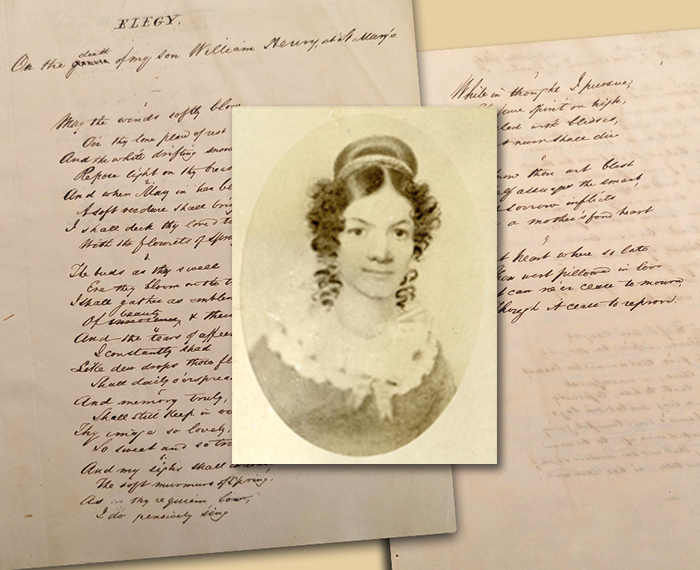 ELEGY.
On the death of my son William Henry, at St. Mary's
May the winds softly blow
O'er thy lone place of rest
And the white drifting snow
Repose light on thy breas
And when May in her bl
A soft verdure shall bri
I shall deck thy lone t
With the flowrets of Spri
The buds as they swell
Ere they bloom on the t
I shall gather as emblem
Of innocence beauty & thei
And the tears of affec
I constantly shed
Like dew drops those fl
Shall daily o'erspre
And memory truly,
Shall still keep in
Thy image so lovely,
So sweet and so tr
And my sighs shall
The soft murmurs of Spring.
As thy requiem low,
I do pensively sing
While in thought I pursue,
pure spirit on high,
led with blisses,
never shall die
how thou art blest
the smart
sorrow inflicts
a mother's fond heart
heart where so late
wert pillowed in love
can ne'er cease to mourn
though it cease to reprove.